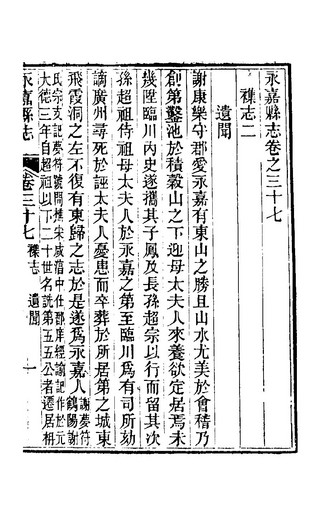 永嘉縣志卷之三十七
襍志二
遺聞
謝康樂守郡愛永嘉有東山之勝且山水尤美於會稽乃
創第鑿池於積榖山之下迎母太夫人來養欲定居焉未
幾陞臨川內史遂攜其子鳳及長孫超宗以行而留其次
孫超祖侍祖母太夫人於永嘉之第至臨川爲有司所劾
謫廣州尋死於誣太夫人憂患而卒葬於所居第之城東
飛霞洞之左不復有東歸之志於是遂爲永嘉人謝夢符鶴陽謝
氏宗支記夢符號問樵宋咸淳中仕 經諭記作於元
大德三年自超祖以下二十世名詵第五五公者遷居枏
永嘉縣志
卷三十七
襍志
遺聞
一